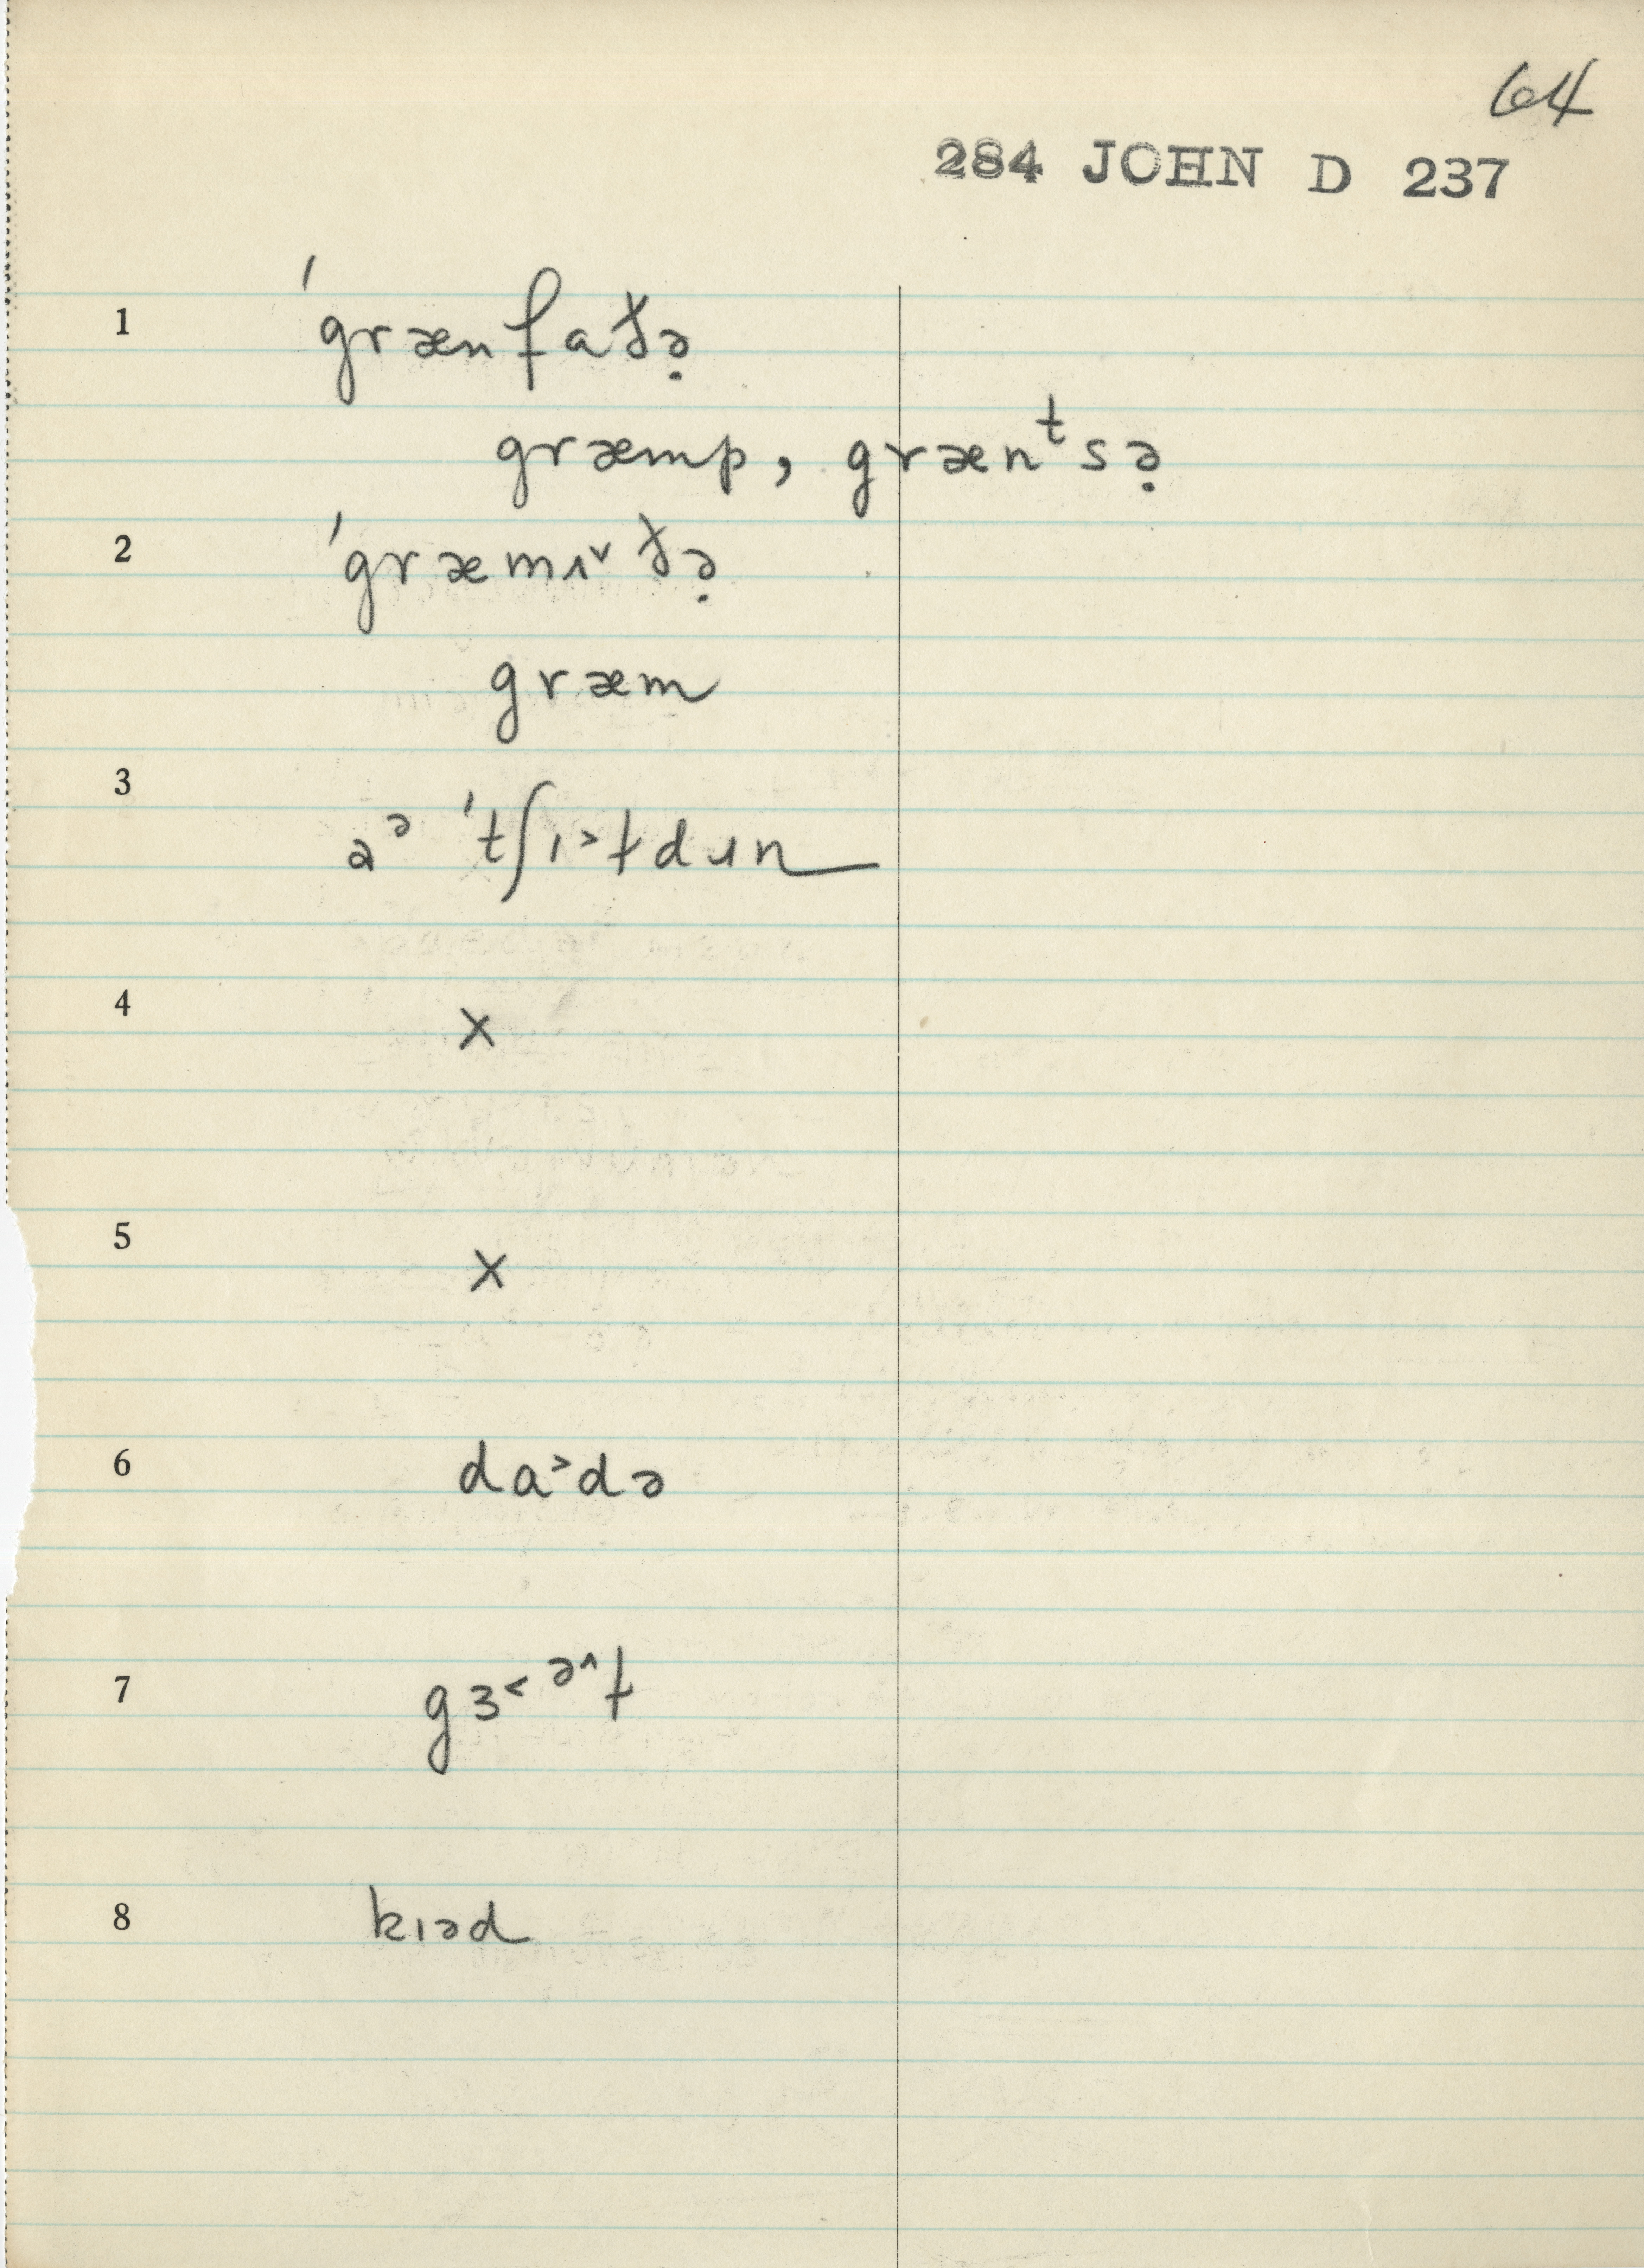 64
284 JOHN D 237
1 ˈgrænfaðə̣
græmp, grænᵗsə̣
2 ˈgræmɪ˅ðə̣
græm
3 aᵊ ˈtʃɪ˃ɫdɹn
4 x
5 x
6 da˃də
7 gɜ˂ᵊ^ɫ
8 kɪəd